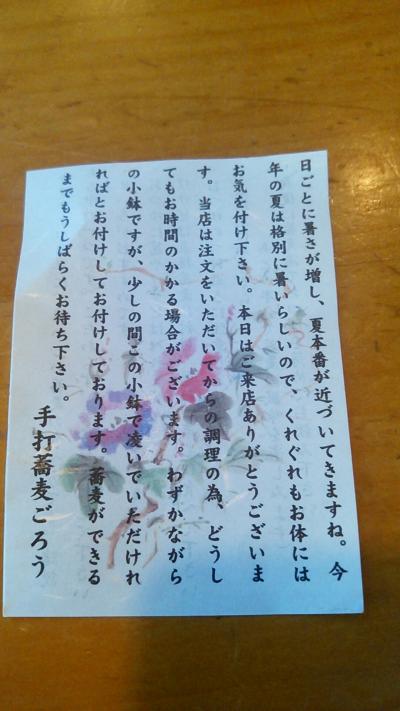 日ごとに暑さが増し、夏本番が近づいてきますね。今
年の夏は格別に暑いらしいので、くれぐれもお体には
お気を付け下さい。本日はご来店ありがとうございま
す。当店は注文をいただいてからの調理の為、どうし
てもお時間のかかる場合がございます。わずかながら
の小鉢ですが、少しの間この小鉢で凌いでいただけれ
ればとお付けしてお付けしております。蕎麦ができる
までもうしばらくお待ち下さい。
手打蕎麦ごろう